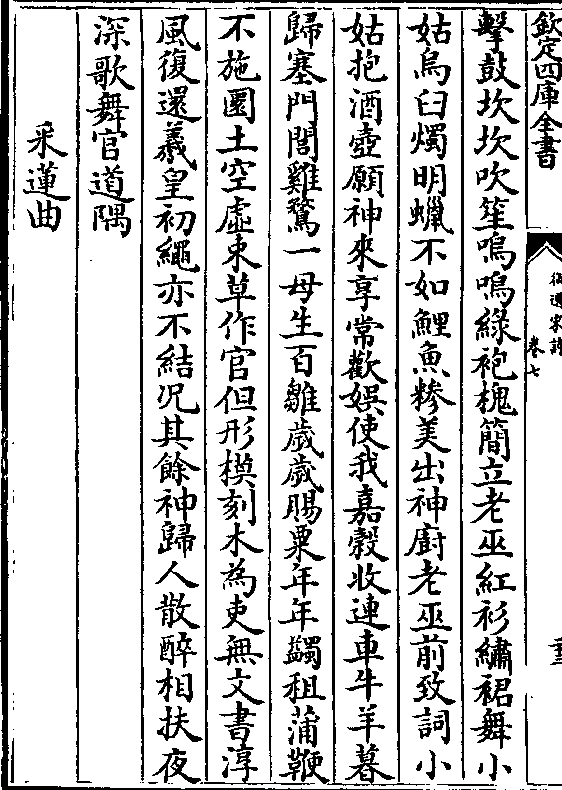 欽定四庫全書
御選宋詩
卷七
擊鼓坎坎吹笙嗚嗚綠袍槐簡立老巫紅衫繡裙舞小
姑烏臼燭明蠟不如鯉魚糝美出神廚老巫前致詞小
姑抱酒壺願神來享常歡娛使我嘉穀收連車牛羊暮
歸塞門閭雞鶩一母生百雛歲歲賜粟年年蠲租蒲鞭
不施圜土空虛束草作官但形模刻木為吏無文書淳
風復還羲皇初繩亦不結況其餘神歸人散醉相扶夜
深歌舞官道隅
采蓮曲